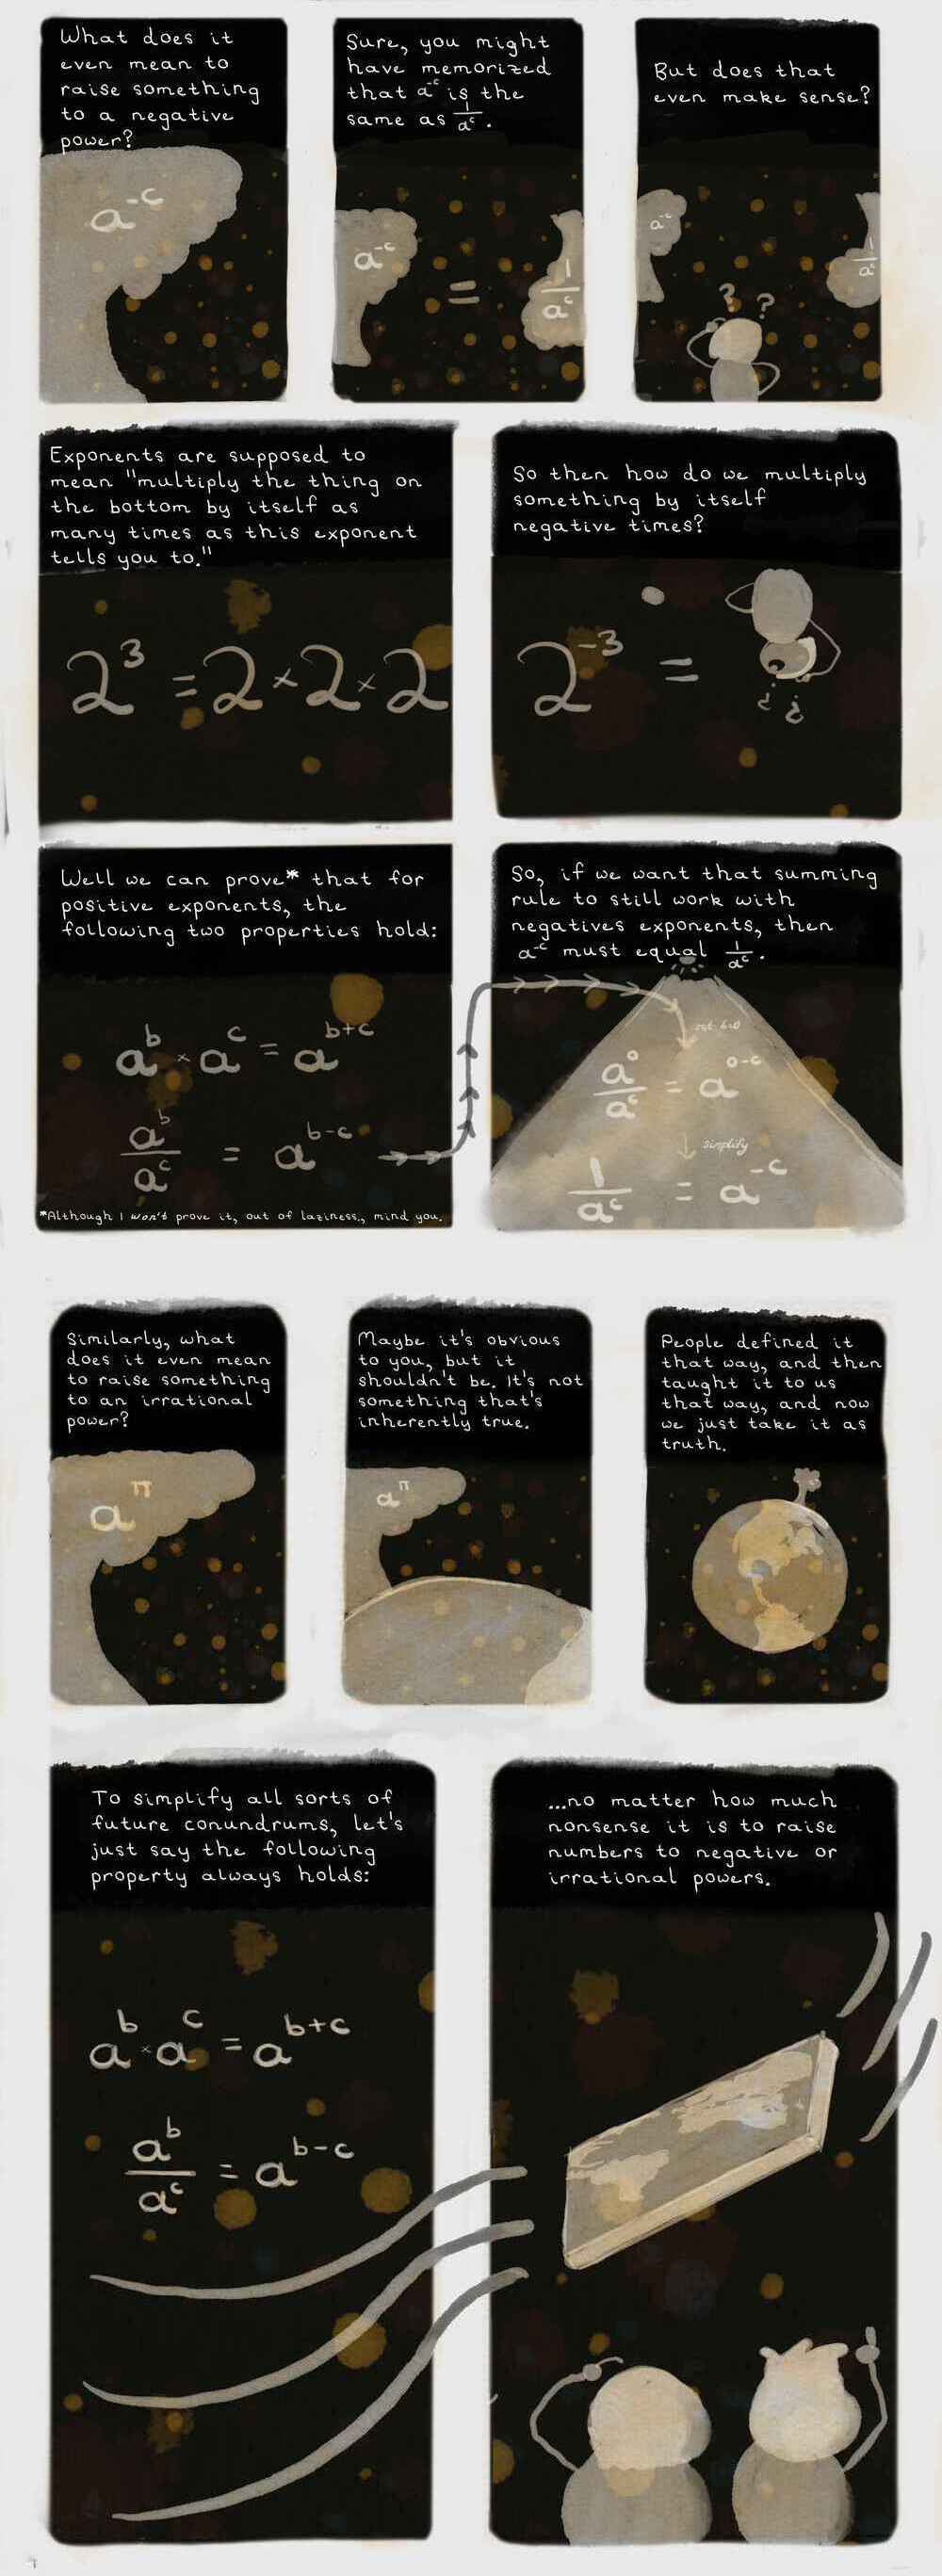 What does it
even mean to
raise something
to a negative
power?
a⁻ᶜ
Sure, you might
have memorized
that a⁻ᶜ is the
same as 1/aᶜ.
a⁻ᶜ = 1/aᶜ
But does that
even make sense?
a⁻ᶜ
1/aᶜ
? ?
Exponents are supposed to
mean "multiply the thing on
the bottom by itself as
many times as this exponent
tells you to."
2³ = 2 × 2 × 2
So then how do we multiply
something by itself
negative times?
2⁻³ =
¿ ¿
Well we can prove* that for
positive exponents, the
following two properties hold:
aᵇ × aᶜ = aᵇ⁺ᶜ
aᵇ/aᶜ = aᵇ⁻ᶜ
*Although I won't prove it, out of laziness, mind you.
So, if we want that summing
rule to still work with
negatives exponents, then
a⁻ᶜ must equal 1/aᶜ.
set b=0
a⁰/aᶜ = a⁰⁻ᶜ
simplify
1/aᶜ = a⁻ᶜ
Similarly, what
does it even mean
to raise something
to an irrational
power?
a^π
Maybe it's obvious
to you, but it
shouldn't be. It's not
something that's
inherently true.
a^π
People defined it
that way, and then
taught it to us
that way, and now
we just take it as
truth.
To simplify all sorts of
future conundrums, let's
just say the following
property always holds:
aᵇ × aᶜ = aᵇ⁺ᶜ
aᵇ/aᶜ = aᵇ⁻ᶜ
...no matter how much
nonsense it is to raise
numbers to negative or
irrational powers.